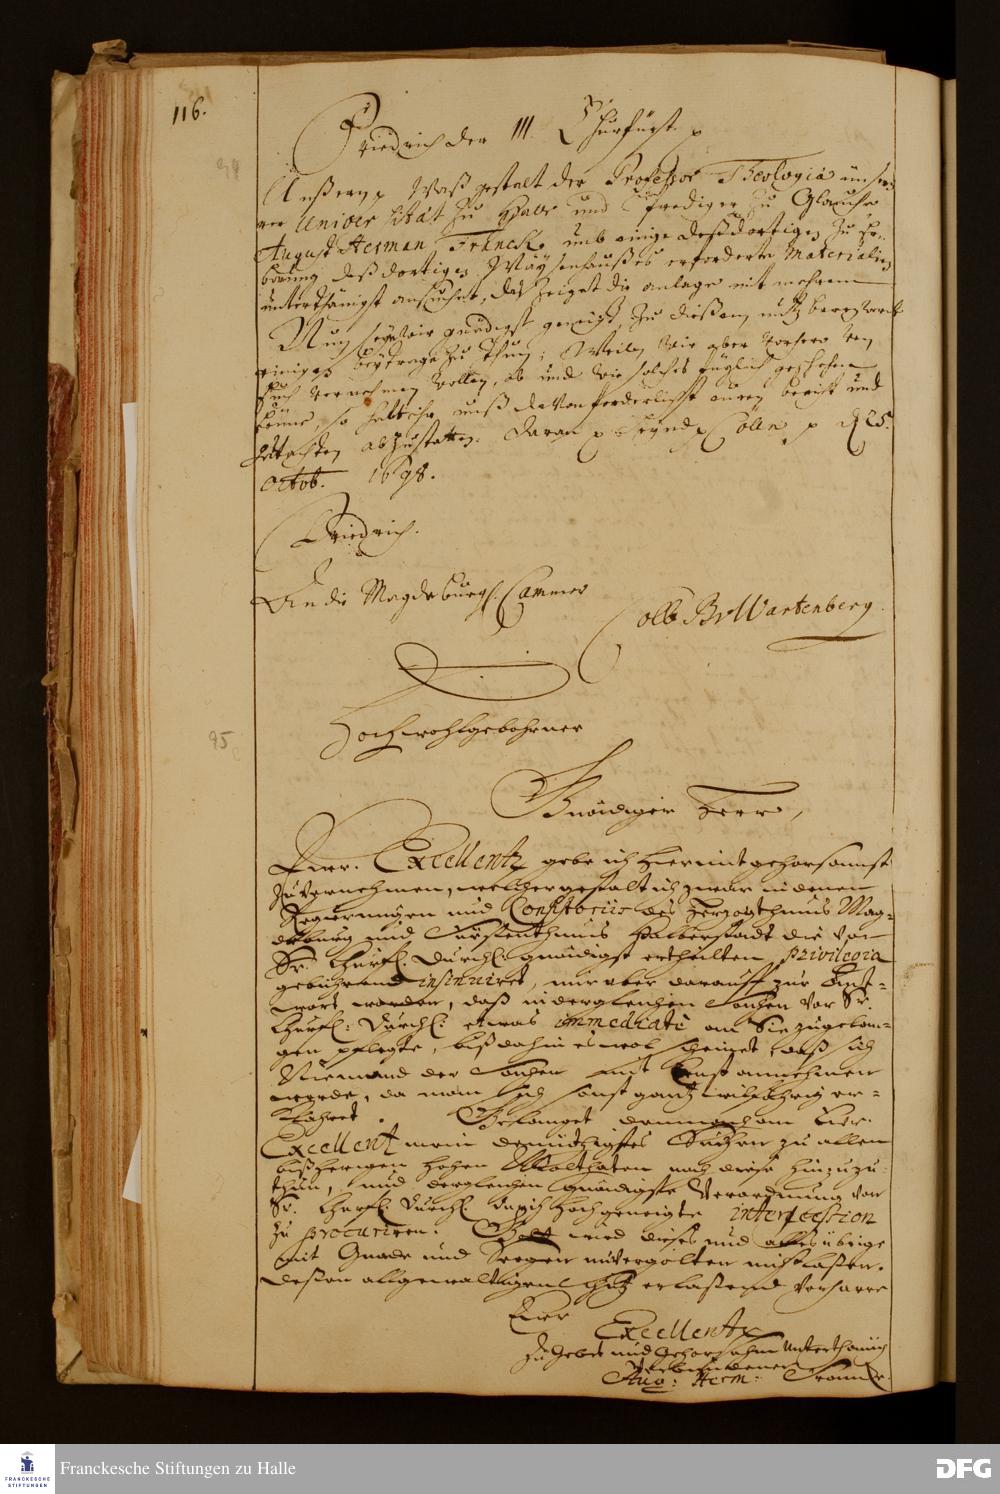 116.
94
Friedrich der III. Churfürst p
Unßern p Waß gestalt der Professor Theologiä unse-
rer Universität zu Halle und Prediger zu Glaucha
August Herman Franck, umb einige deß dortigen zu Er-
bauung deß dortigen Wäysenhaußes erforderte Materialien
unterthänigst ansuchet, das zeiget die anlage mit mehrem
Nun seynd wir gnädigst geneigt, zu dießem nutzbaren werck
einigen beytrag zu thun; Weilen wir aber vorhero von
Euch vernehmen wollen, ob und wie solches füglich geschehen
könne, so habt ihr unß davon forderlichst euren bericht und
gutachten abzustatten. Daran p Seynd p Cölln p d 25.
Octob. 1698.
Friedrich.
An die Magdeburgs. Cammer
Colb v Wartenberg.
95
Hochwohlgebohrner
Gnädiger Herr,
Ewr. Excellentz gebe ich hiermit gehorsamst
zu vernehmen, welcher gestalt ich zwar in denen
Regierungen und Consistoriis des Herzogthums Mag-
deburg und Fürstenthums Halberstadt die von
Sr. Churfl. Durchl. gnädigst erhalten privilegia
gebührend insinuiret, mir aber darauff zur Ant-
wort worden, daß in dergleichen Sachen von Sr.
Churfl. Durchl. etwas immediatè an Sie zugelan-
gen pflegte, biß dahin es wol scheinet, daß sich
Niemand der Sachen mit Ernst annehmen
werde, da man sich sonst gantz willfährig er-
klähret. Gelanget demnach an Ewr.
Excellentz mein demüthigstes Suchen zu allen
bißherigen hohen Wolthaten noch diese hinzuzu-
thun, und dergleichen gnädigste Verordnung von
Sr. Churfl. Durchl. durch hochgeneigte intercession
zu procuriren. Gott wird dieses und alles übrige
mit Gnade und Seegen unvergolten nicht laßen.
Deßen allgewaltigem Schutz erlaßend verharre
Ewr
Excellentz
zu Gebet und Gehorsahm Unterthänig
Verbundener
Aug: Herm: Francke.
Franckesche Stiftungen zu Halle
FRANCKESCHE
STIFTUNGEN
DFG